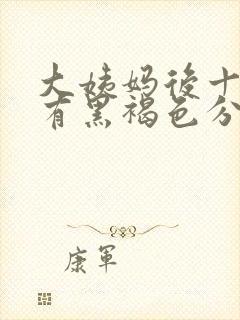 大姨妈後十
有黑褐色分
康軍